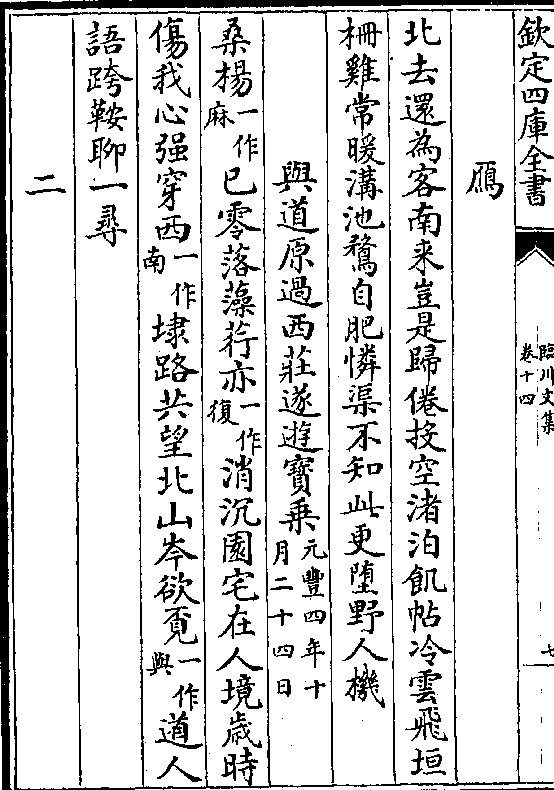 欽定四庫全書
臨川文集
卷十四
七
鴈
北去還為客南来豈是歸倦投空渚泊飢帖冷雲飛垣
柵雞常暖溝池鶩自肥憐渠不知此更墮野人機
與道原過西莊遂遊寶乗元豐四年十月二十四日
桑楊一作麻已零落藻荇亦一作復消沉園宅在人境歳時
傷我心强穿西一作南埭路共望北山岑欲覔一作與道人
語跨鞍聊一尋
二